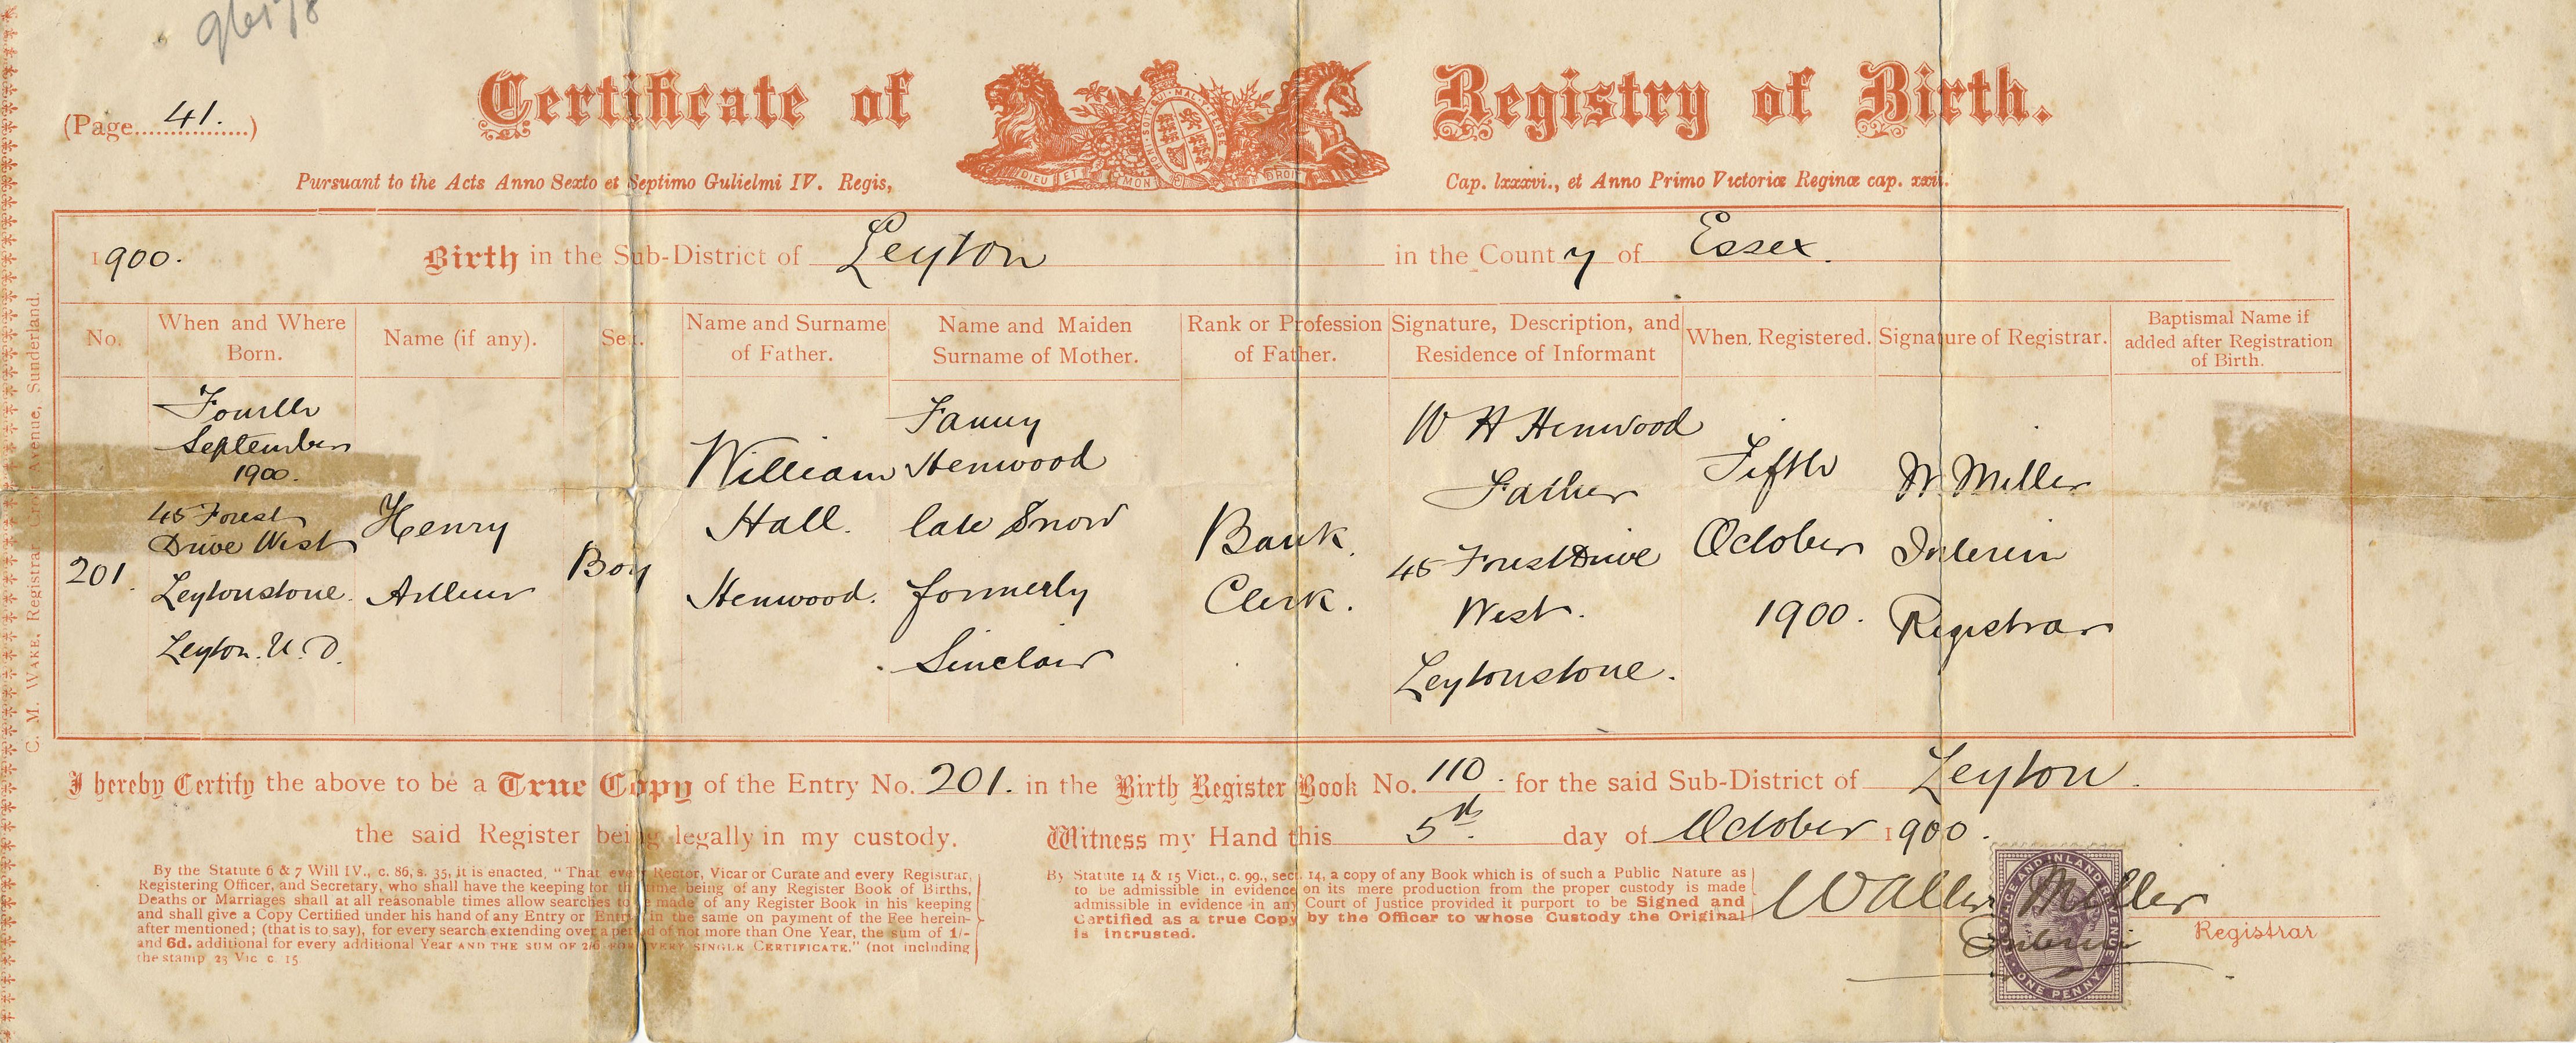 (Page 41.)
Certificate of Registry of Birth.
DIEU ET MON DROIT
HONI SOIT QUI MAL Y PENSE
Pursuant to the Acts Anno Sexto et Septimo Gulielmi IV. Regis, Cap. lxxxvi., et Anno Primo Victoriæ Reginæ cap. xxii.
1900. Birth in the Sub-District of Leyton in the County of Essex.
No.
When and Where
Born.
Name (if any).
Sex.
Name and Surname
of Father.
Name and Maiden
Surname of Mother.
Rank or Profession
of Father.
Signature, Description, and
Residence of Informant
When Registered.
Signature of Registrar.
Baptismal Name if
added after Registration
of Birth.
201.
Fourth
September
1900.
45 Forest
Drive West
Leytonstone.
Leyton. U. D.
Henry
Arthur
Boy
William
Hall.
Henwood.
Fanny
Henwood
late Snow
formerly
Sinclair
Bank.
Clerk.
W H Henwood
Father
45 Forest Drive
West.
Leytonstone.
Fifth
October
1900.
W. Miller
Interim
Registrar
I hereby Certify the above to be a True Copy of the Entry No. 201. in the Birth Register Book No. 110. for the said Sub-District of Leyton.
the said Register being legally in my custody. Witness my Hand this 5th. day of October 1900.
By the Statute 6 & 7 Will IV., c. 86, s. 35, it is enacted, "That every Rector, Vicar or Curate and every Registrar,
Registering Officer, and Secretary, who shall have the keeping for the time being of any Register Book of Births,
Deaths or Marriages shall at all reasonable times allow searches to be made of any Register Book in his keeping
and shall give a Copy Certified under his hand of any Entry or Entry in the same on payment of the Fee herein-
after mentioned; (that is to say), for every search extending over a period of not more than One Year, the sum of 1/-
and 6d. additional for every additional Year AND THE SUM OF 2/6 FOR EVERY SINGLE CERTIFICATE." (not including
the stamp 23 Vic c. 15
By Statute 14 & 15 Vict., c. 99., sect. 14, a copy of any Book which is of such a Public Nature as
to be admissible in evidence on its mere production from the proper custody is made
admissible in evidence in any Court of Justice provided it purport to be Signed and
Certified as a true Copy by the Officer to whose Custody the Original
is intrusted.
Walter Miller
Interim
Registrar
POSTAGE AND INLAND REVENUE
ONE PENNY
C. M. WAKE, Registrar Avenue, Sunderland.